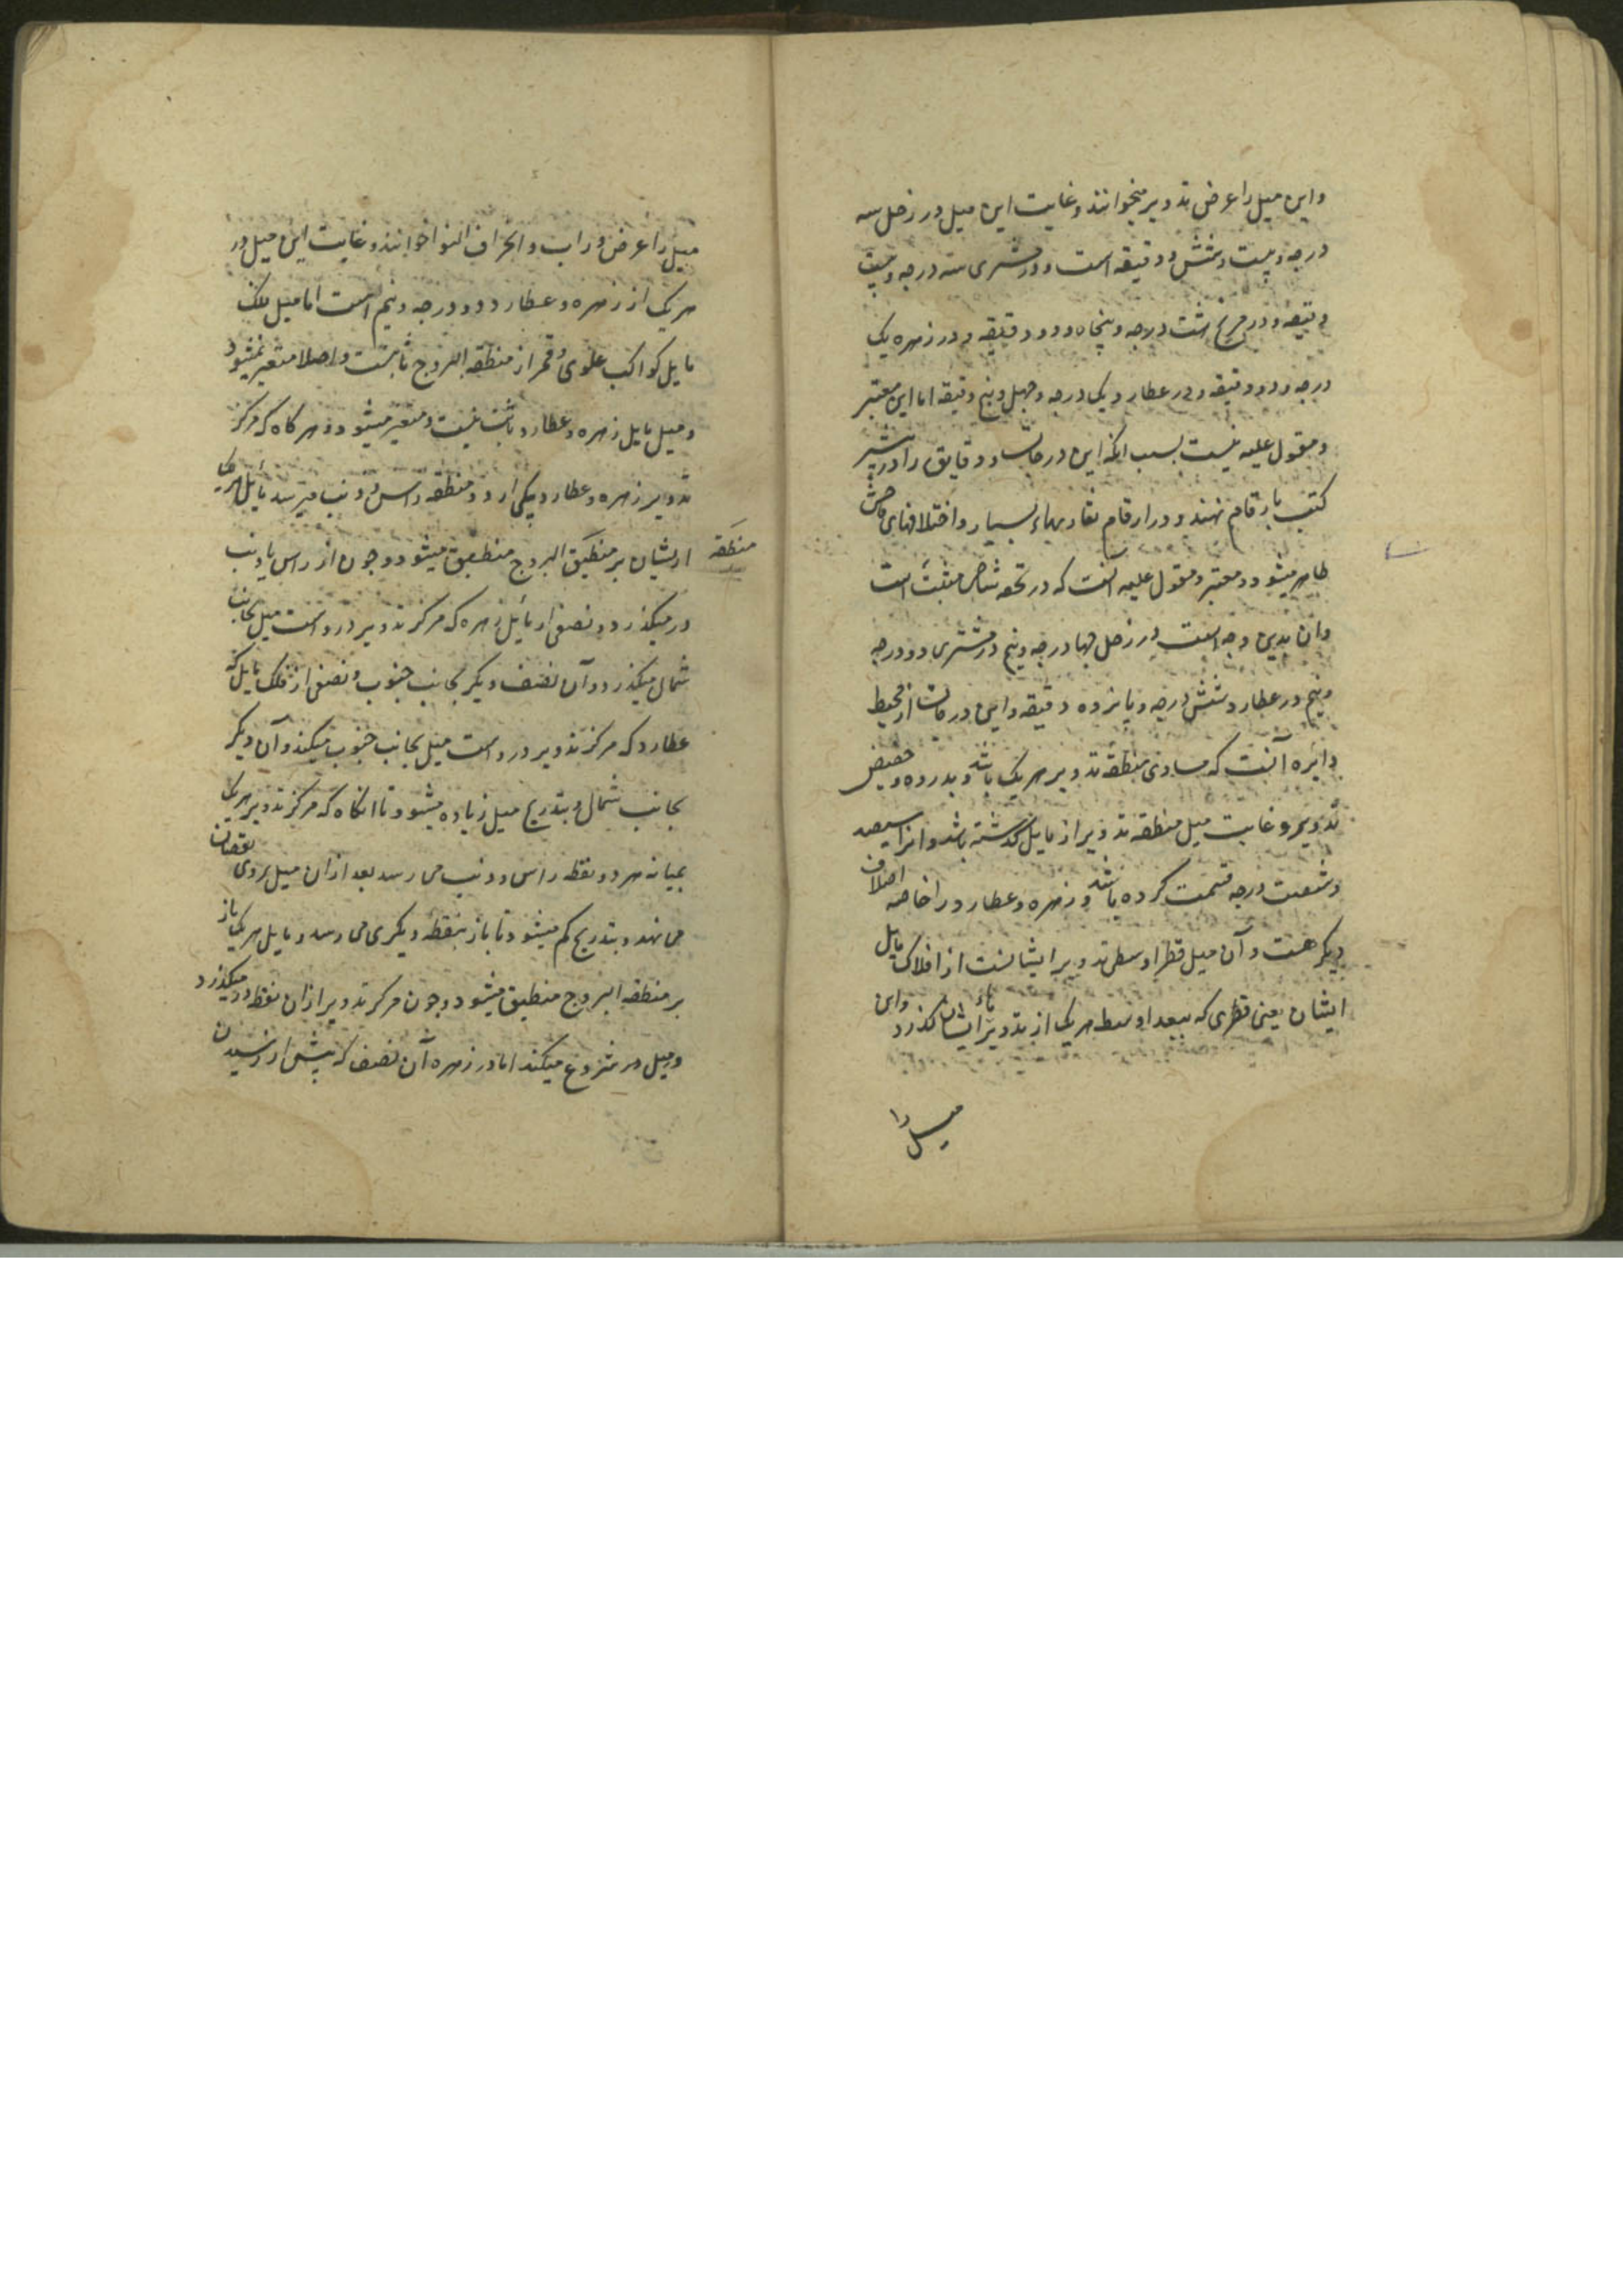 واین میل را عرض تدویر میخوانند و غایت این میل در زحل سه
درجه و بیست و شش دقیقه است و در مشتری سه درجه و بیست
دقیقه و در مریخ شست درجه و پنجاه و دو دقیقه و در زهره یک
درجه و دو دقیقه و در عطارد یک درجه و چهل و پنج دقیقه اما این معتبر
و مقول علیه نیست بسبب انکه این درجات و دقایق را در بیشتر
کتب بارقام نهند و در ارقام تفاوتهاء بسیار و اختلافهای فاحش
ظاهر میشود و معتبر و مقول علیه آنست که در تحفه شاهی مثبت است
وان بدین وجه است در زحل چهار درجه و نیم و در مشتری دو درجه
و نیم و در عطارد شش درجه و پانزده دقیقه و این درجات از محیط
دایره آنست که مساوی منطقه تدویر هر یک باشد و بذروه و حضیض
تدویر و غایت میل منطقه تدویر از مایل گذشته باشد و انرا سیصد
و شصت درجه قسمت کرده باشند و زهره و عطارد را خاصه اختلاف
دیکر هست و آن میل قطر اوسط تدویر ایشانست از افلاک مایل
ایشان یعنی قطری که ببعد اوسط هر یک از تدویرهاء ایشان گذرد و این
میل را
میل را عرض وراب و انحراف التوا خوانند و غایت این میل در
هر یک از زهره و عطارد دو درجه و نیم است اما میل فلک
مایل کواکب علوی و قمر از منطقه البروج ثابتست و اصلا متغیر نمیشود
و میل مایل زهره و عطارد ثابت نیست و متغیر میشود و هر کاه که مرکز
تدویر زهره و عطارد بیکی از دو منطقه راس و ذنب میرسد مایل هر یکی
از یشان بر منطیق البروج منطبق میشود و چون از راس یا ذنب
منطقه
در میکذرد و نصفی از مایل زهره که مرکز تدویر درو است میل بجانب
شمال میکذرد و آن نصف دیکر بجانب جنوب و نصفی از فلک مایل که
عطارد که مرکز تدویر درو است میل بجانب جنوب میکند و آن دیکر
بجانب شمال و بتدریج میل زیاده میشود تا انکاه که مرکز تدویر هر یک
بمیانه هر دو نقطه راس و ذنب می رسد بعد ازان میل بروی نقصان
می نهد و بتدریج کم میشود تا باز بنقطه دیکری می رسد و مایل هر یک باز
بر منطقه البروج منطبق میشود و چون مرکز تدویر ازان نقطه در میکذرد
و میل در شروع میکند اما در زهره آن نصف که پیش از رسیدن